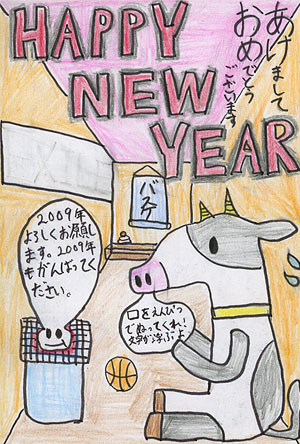 HAPPY
NEW
YEAR
あけまして
おめでとう
ございます
バスケ
2009年
よろしくお願し
ます。2009年
もがんばってく
ださい。
口をえんぴつ
でぬってくれ!
文字が浮ぶよ